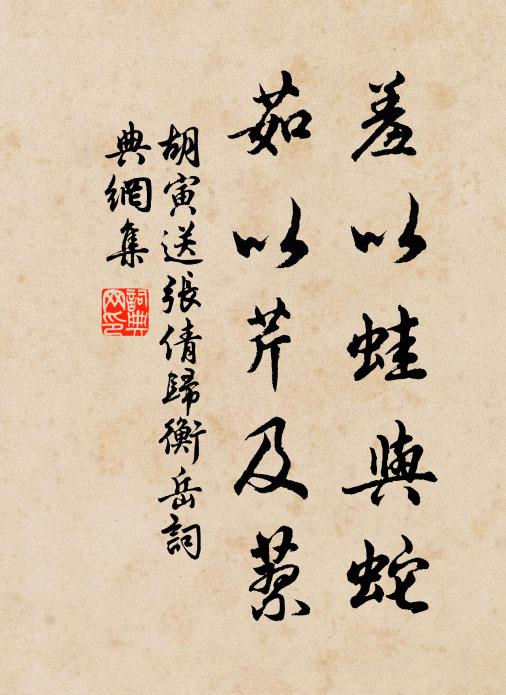 羞以蛙與蛇
茹以芹及蘩
胡寅送張倩歸衡岳詞
典網集
詞典网印